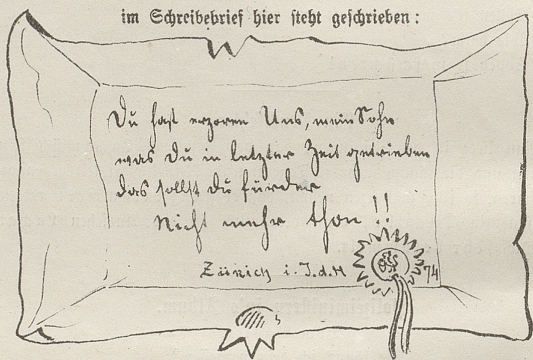 im Schreibebrief hier steht geschrieben:
Du hast erzoren Uns, mein Sohn
was Du in letzter Zeit getrieben
das sollst Du fürder
Nicht mehr thon!!
Zürich i. J. d. H 74